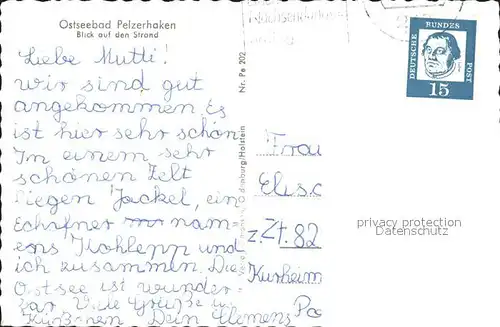 Ostseebad Pelzerhaken
Blick auf den Strand
Liebe Mutti!
wir sind gut
angekommen. Es
ist hier sehr schön.
In einem sehr
schönen Zelt
liegen Jackel, ein
nam-
ens Kohlepp und
ich zusammen. Die
Ostsee ist wunder-
bar. Viele Grüße u.
Dein Clemens
Nr. Pe 202
Oldenburg/Holstein
DEUTSCHE BUNDES POST
15
Frau
Elis
z. Zt. 82
Kurheim
privacy protection
Datenschutz